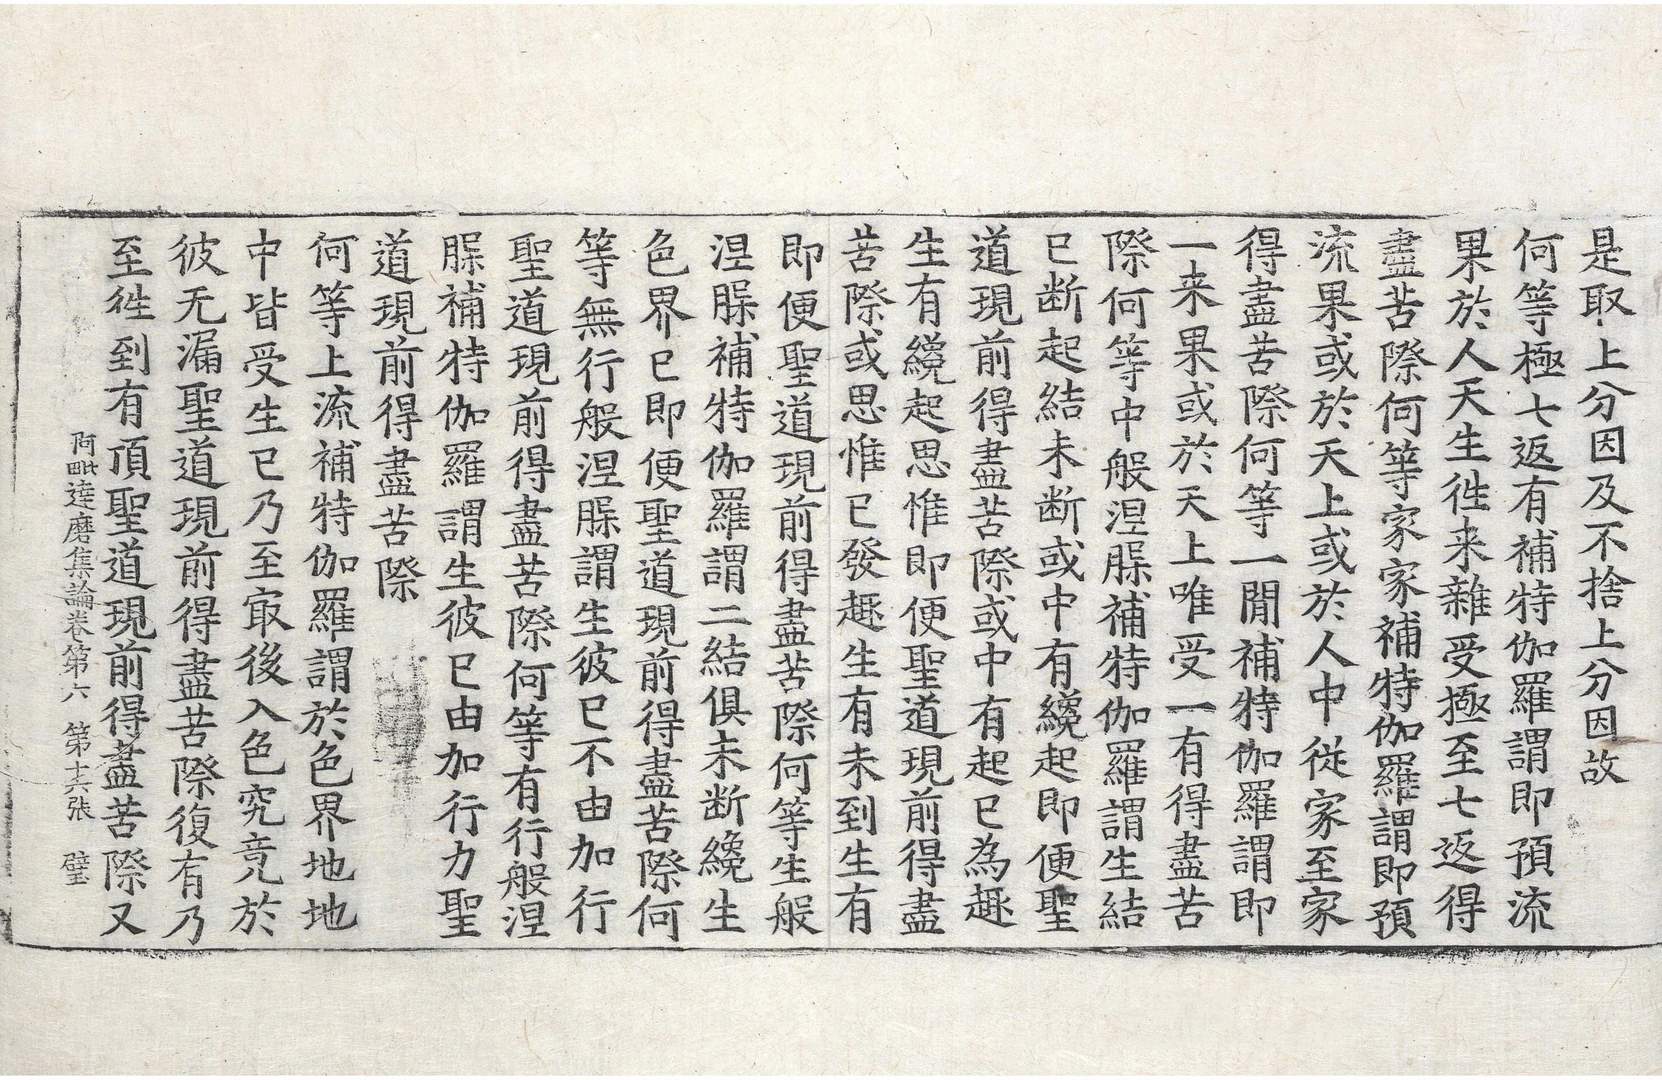 是取上分因及不捨上分因故
何等極七返有補特伽羅謂即預流
果於人天生徃来雜受極至七返得
盡苦際何等家家補特伽羅謂即預
流果或於天上或於人中從家至家
得盡苦際何等一閒補特伽羅謂即
一来果或於天上唯受一有得盡苦
際何等中般涅槃補特伽羅謂生結
已断起結未断或中有纔起即便聖
道現前得盡苦際或中有起已為趣
生有纔起思惟即便聖道現前得盡
苦際或思惟已發趣生有未到生有
即便聖道現前得盡苦際何等生般
涅槃補特伽羅謂二結俱未断纔生
色界已即便聖道現前得盡苦際何
等無行般涅槃謂生彼已不由加行
聖道現前得盡苦際何等有行般涅
槃補特伽羅謂生彼已由加行力聖
道現前得盡苦際
何等上流補特伽羅謂於色界地地
中皆受生已乃至㝡後入色究竟於
彼无漏聖道現前得盡苦際復有乃
至徃到有頂聖道現前得盡苦際又
阿毗達磨集論卷第六 第十六張 璧